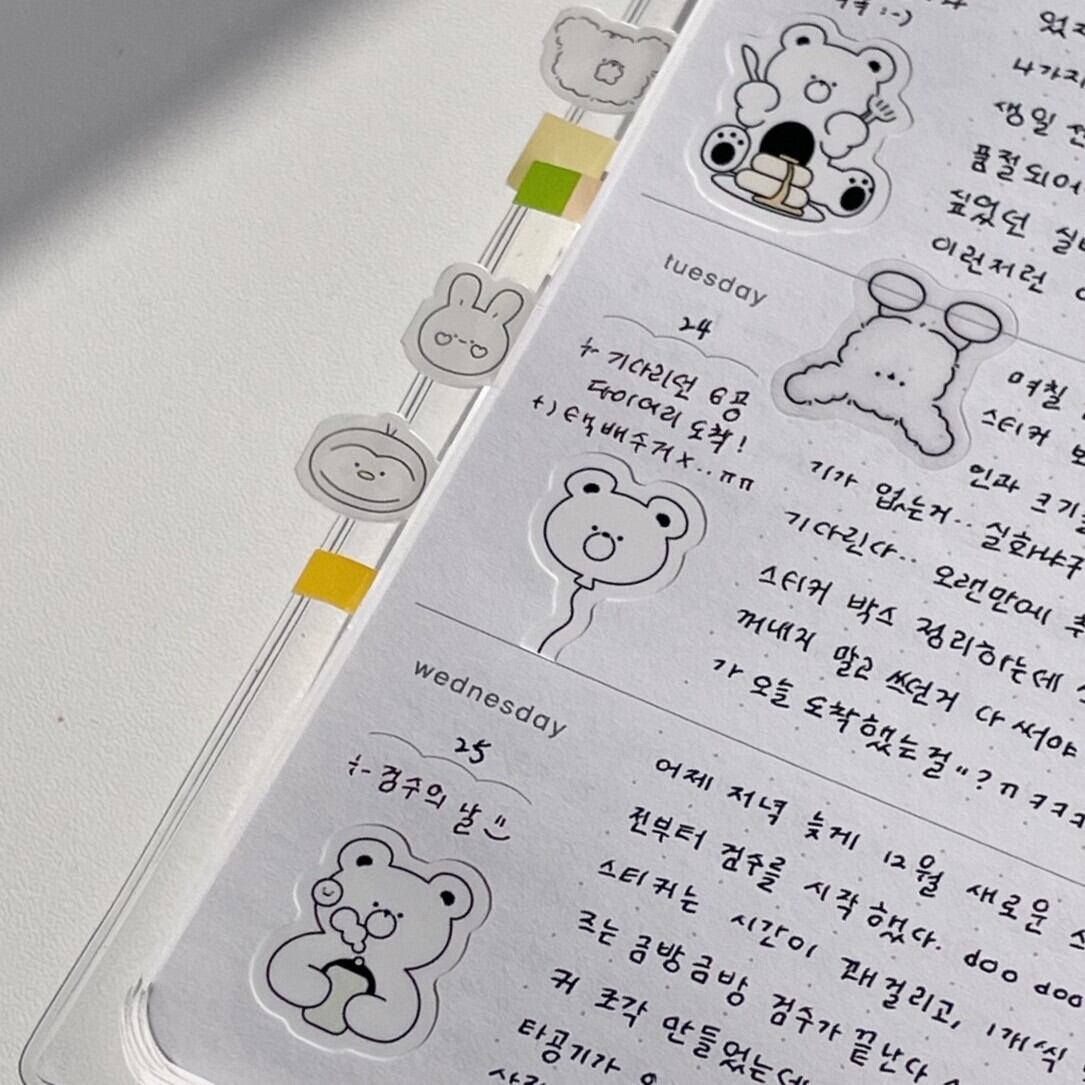 :-)
나가지
생일 선
품절되어
싶었던 실
이런저런
tuesday
24
기다리던 6공
다이어리 도착!
+) 택배수거 x..ㅠㅠ
며칠
스티커 보
인과 크기
기가 없는거.. 실화냐구
기다린다.. 오랜만에 추
스티커 박스 정리하는데
꺼내지 말고 쓰던거 다 써야
가 오늘 도착했는걸"? ㅠㅋㅋㅋ
wednesday
25
검수의 날
어제 저녁 늦게 12월 새로운 스
전부터 검수를 시작했다. doo doo
스티커는 시간이 꽤 걸리고, 1개씩
즈는 금방금방 검수가 끝난다
커 조각 만들었는데
타공기가